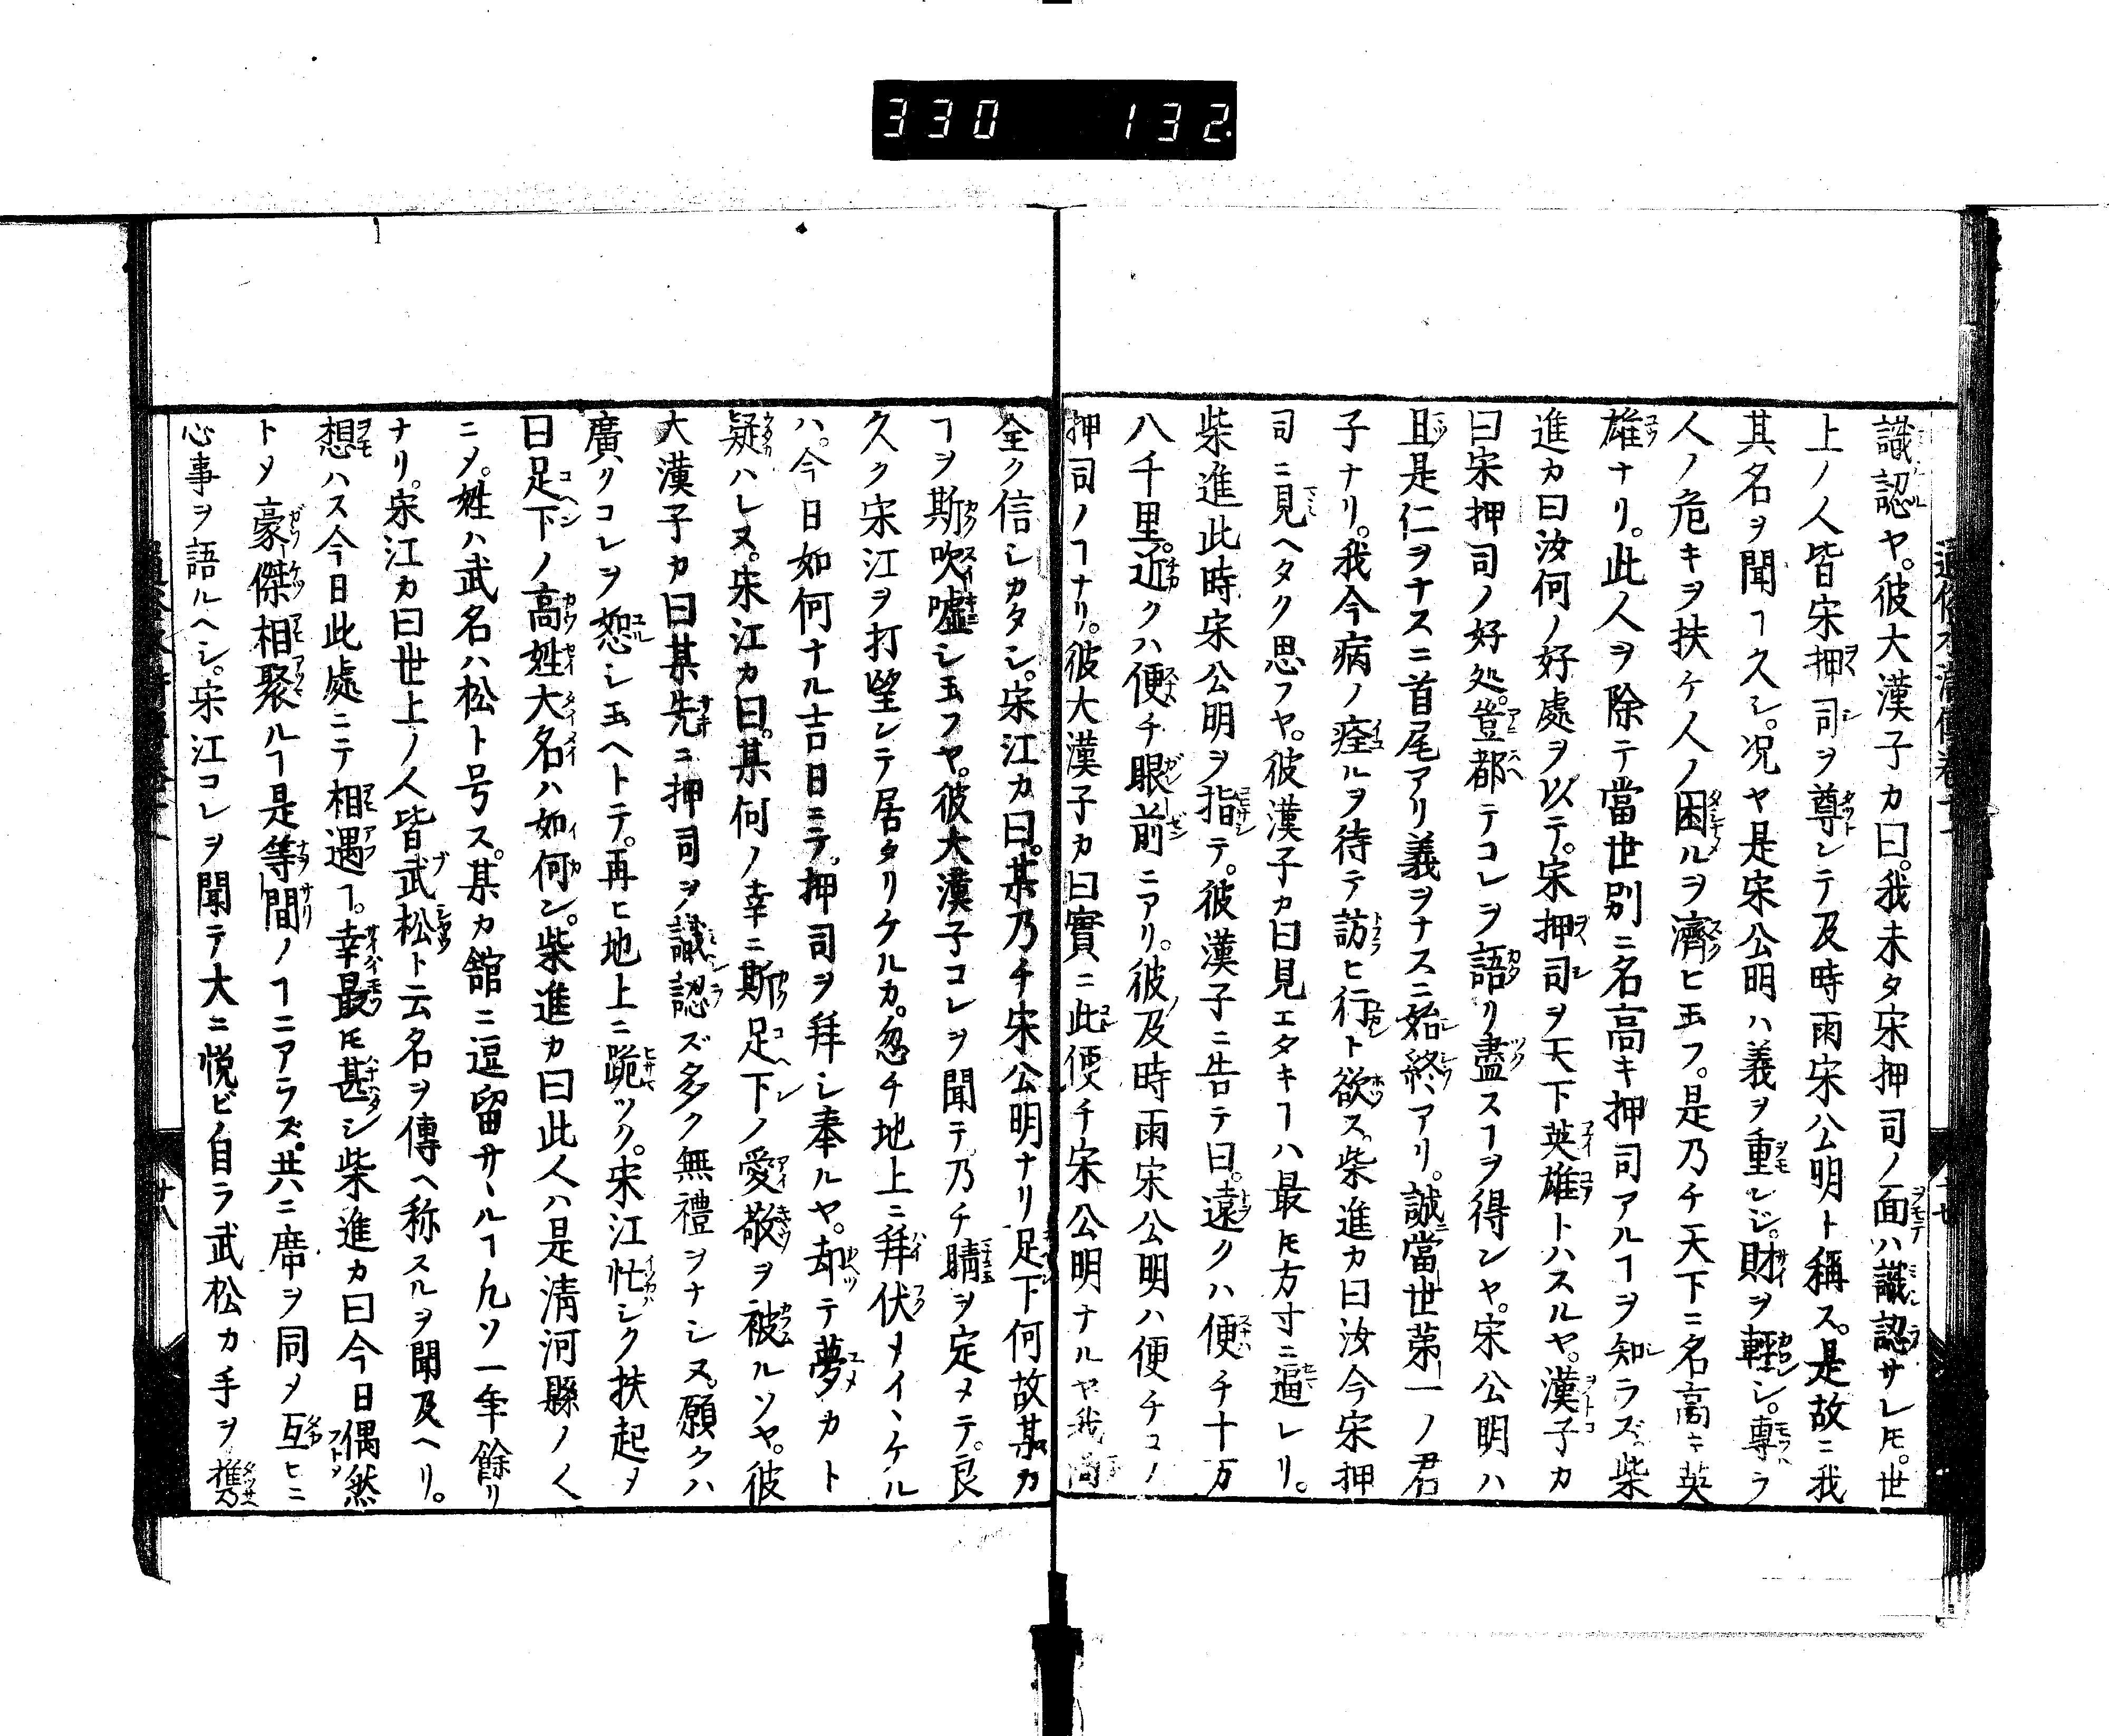 330 132
識認ヤ。彼大漢子カ曰。我未タ宋押司ノ面ハ識認サレㄘ。世
上ノ人皆宋押司ヲ尊ンテ及時雨宋公明ト稱ス。是故ニ我
其名ヲ聞ヿ久シ。况ヤ是宋公明ハ義ヲ重ンジ。財ヲ輕シ。專ラ
人ノ危キヲ扶ケ人ノ困ルヲ濟ヒ玉フ。是乃チ天下ニ名高キ英
雄ナリ。此人ヲ除テ當世別ニ名高キ押司アルヿヲ知ラズ。柴
進カ曰汝何ノ好處ヲ以テ。宋押司ヲ天下英雄トハスルヤ。漢子カ
曰宋押司ノ好処。豈都テコレヲ語リ盡スヿヲ得ンヤ。宋公明ハ
且是仁ヲナスニ首尾アリ義ヲナスニ始終アリ。誠ニ當世第一ノ君
子ナリ。我今病ノ痊ルヲ待テ訪ヒ行ト欲ス。柴進カ曰汝今宋押
司ニ見ヘタク思フヤ。彼漢子カ曰見エタキヿハ最ㄘ方寸ニ逼レリ。
柴進此時宋公明ヲ指テ。彼漢子ニ告テ曰。遠クハ便チ十万
八千里。近クハ便チ眼前ニアリ。彼ノ及時雨宋公明ハ便チコノ
押司ノヿナリ。彼大漢子カ曰實ニ此便チ宋公明ナルヤ我尚
全ク信シカタシ。宋江カ曰。某乃チ宋公明ナリ足下何故某カ
ヿヲ斯吹噓シ玉フヤ。彼大漢子コレヲ聞テ乃チ睛ヲ定メテ。良
久ク宋江ヲ打望ンテ居タリケルカ。忽チ地上ニ拜伏メイヽケル
ハ。今日如何ナル吉日ニテ。押司ヲ拜シ奉ルヤ。却テ夢カト
疑ハレヌ。宋江カ曰。某何ノ幸ニ斯足下ノ愛敬ヲ被ルソヤ。彼
大漢子カ曰某先ニ押司ヲ識認ズ多ク無禮ヲナシヌ。願クハ
廣クコレヲ恕シ玉ヘトテ。再ヒ地上ニ跪ツク。宋江忙シク扶起ヲ
曰足下ノ高姓大名ハ如何ン。柴進カ曰此人ハ是清河縣ノ人
ニメ。姓ハ武名ハ松ト号ス。某カ館ニ逗留サヽルヿ凡ソ一年餘リ
ナリ。宋江カ曰世上ノ人皆武松ト云名ヲ傳ヘ称スルヲ聞及ヘリ。
想ハス今日此處ニテ相遇ヿ。幸最ㄘ甚シ柴進カ曰今日偶然
トメ豪傑相聚ルヿ是等間ノヿニアラズ。共ニ席ヲ同メ互ヒニ
心事ヲ語ルヘシ。宋江コレヲ聞テ大ニ悅ビ自ラ武松カ手ヲ携
十八